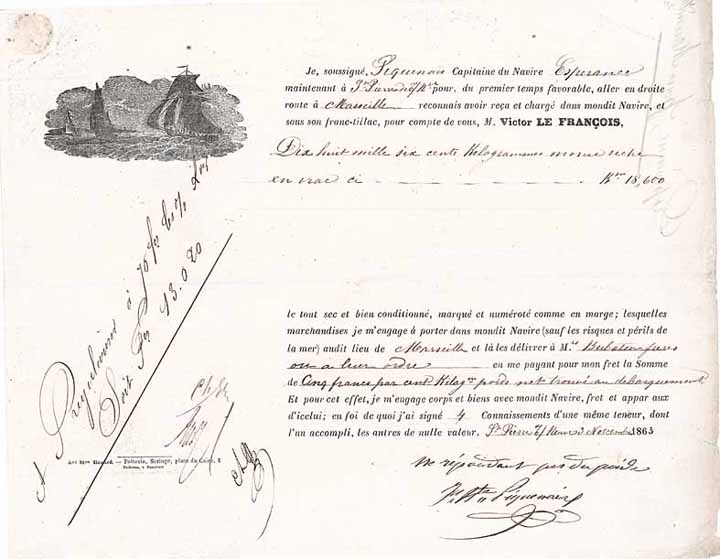 Je, soussigné, Piquenais Capitaine du Navire Esperance
maintenant à St Pierre pour, du premier temps favorable, aller en droite
route à Marseille reconnais avoir reçu et chargé dans mondit Navire, et
sous son franc-tillac, pour compte de vous, M. Victor LE FRANÇOIS,
Dix huit mille six cents Kilogrammes morue
en vrac ci — Kos 18,600
le tout sec et bien conditionné, marqué et numéroté comme en marge; lesquelles
marchandises je m'engage à porter dans mondit Navire (sauf les risques et périls de
la mer) audit lieu de Marseille et là les délivrer à Mrs
ou a leur ordre en me payant pour mon fret la Somme
de Cinq francs par cent Kilogs poids net trouvé au debarquement
Et pour cet effet, je m'engage corps et biens avec mondit Navire, fret et appar aux
d'icelui; en foi de quoi j'ai signé 4 Connaissements d'une même teneur, dont
l'un accompli, les autres de nulle valeur. St Pierre 1863
ne répondant pas du poids
Piquenais
à 70
Soit 13.020
Potterie, Soringe, place du Caire, 2